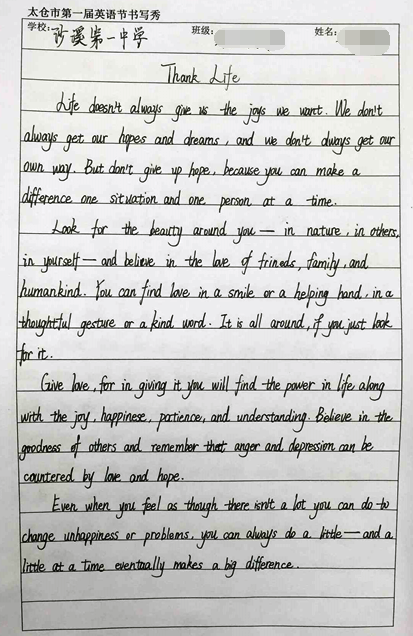 太仓市第一届英语节书写秀
学校: 沙溪第一中学 班级: 姓名:
Thank Life
Life doesn't always give us the joys we want. We don't
always get our hopes and dreams, and we don't always get our
own way. But don't give up hope, because you can make a
difference one situation and one person at a time.
Look for the beauty around you — in nature, in others,
in yourself — and believe in the love of frineds, family, and
humankind. You can find love in a smile or a helping hand, in a
thoughtful gesture or a kind word. It is all around, if you just look
for it.
Give love, for in giving it you will find the power in life along
with the joy, happinese, patience, and understanding. Believe in the
goodness of others and remember that anger and depression can be
countered by love and hope.
Even when you feel as though there isn't a lot you can do to
change unhappiness or problems, you can always do a little — and a
little at a time eventually makes a big difference.